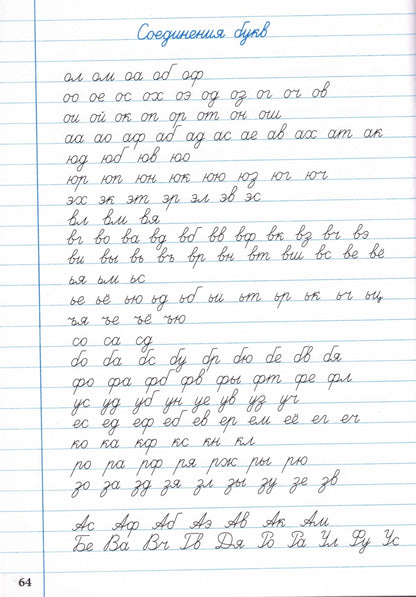 Соединения букв
ол ом оа об оф
оо ое ос ох оэ од оз ог оч ов
ои ой ок оп ор от он ош
аа ао аф аб ад ас ае ав ах ат ак
юд юб юв юо
юр юп юн юк юю юз юг юч
эх эк эт эр эл эв эс
вл вм вя
вг во ва вд вб вв вф вк вз вч вэ
ви вы вь въ вр вн вт вш вс ве вё
ья ьм ьс
ье ьё ью ьд ьб ьи ьт ьр ьк ьч ьц
ъя ъе ъё ъю
со са сд
бо ба бс бу бр бю бе бв бя
фо фа фб фв фы фт фе фл
ус уд уб ун уе ув уз уч
ес ед еф еб ев ер ем её ег еч
ко ка кф кс кн кл
ро ра рф ря рж ры рю
зо за зд зя зл зы зу зе зв
Ас Аф Аб Аэ Ав Ак Ам
Бе Ва Вч Гв Дя Го Га Ул Фу Ус
64